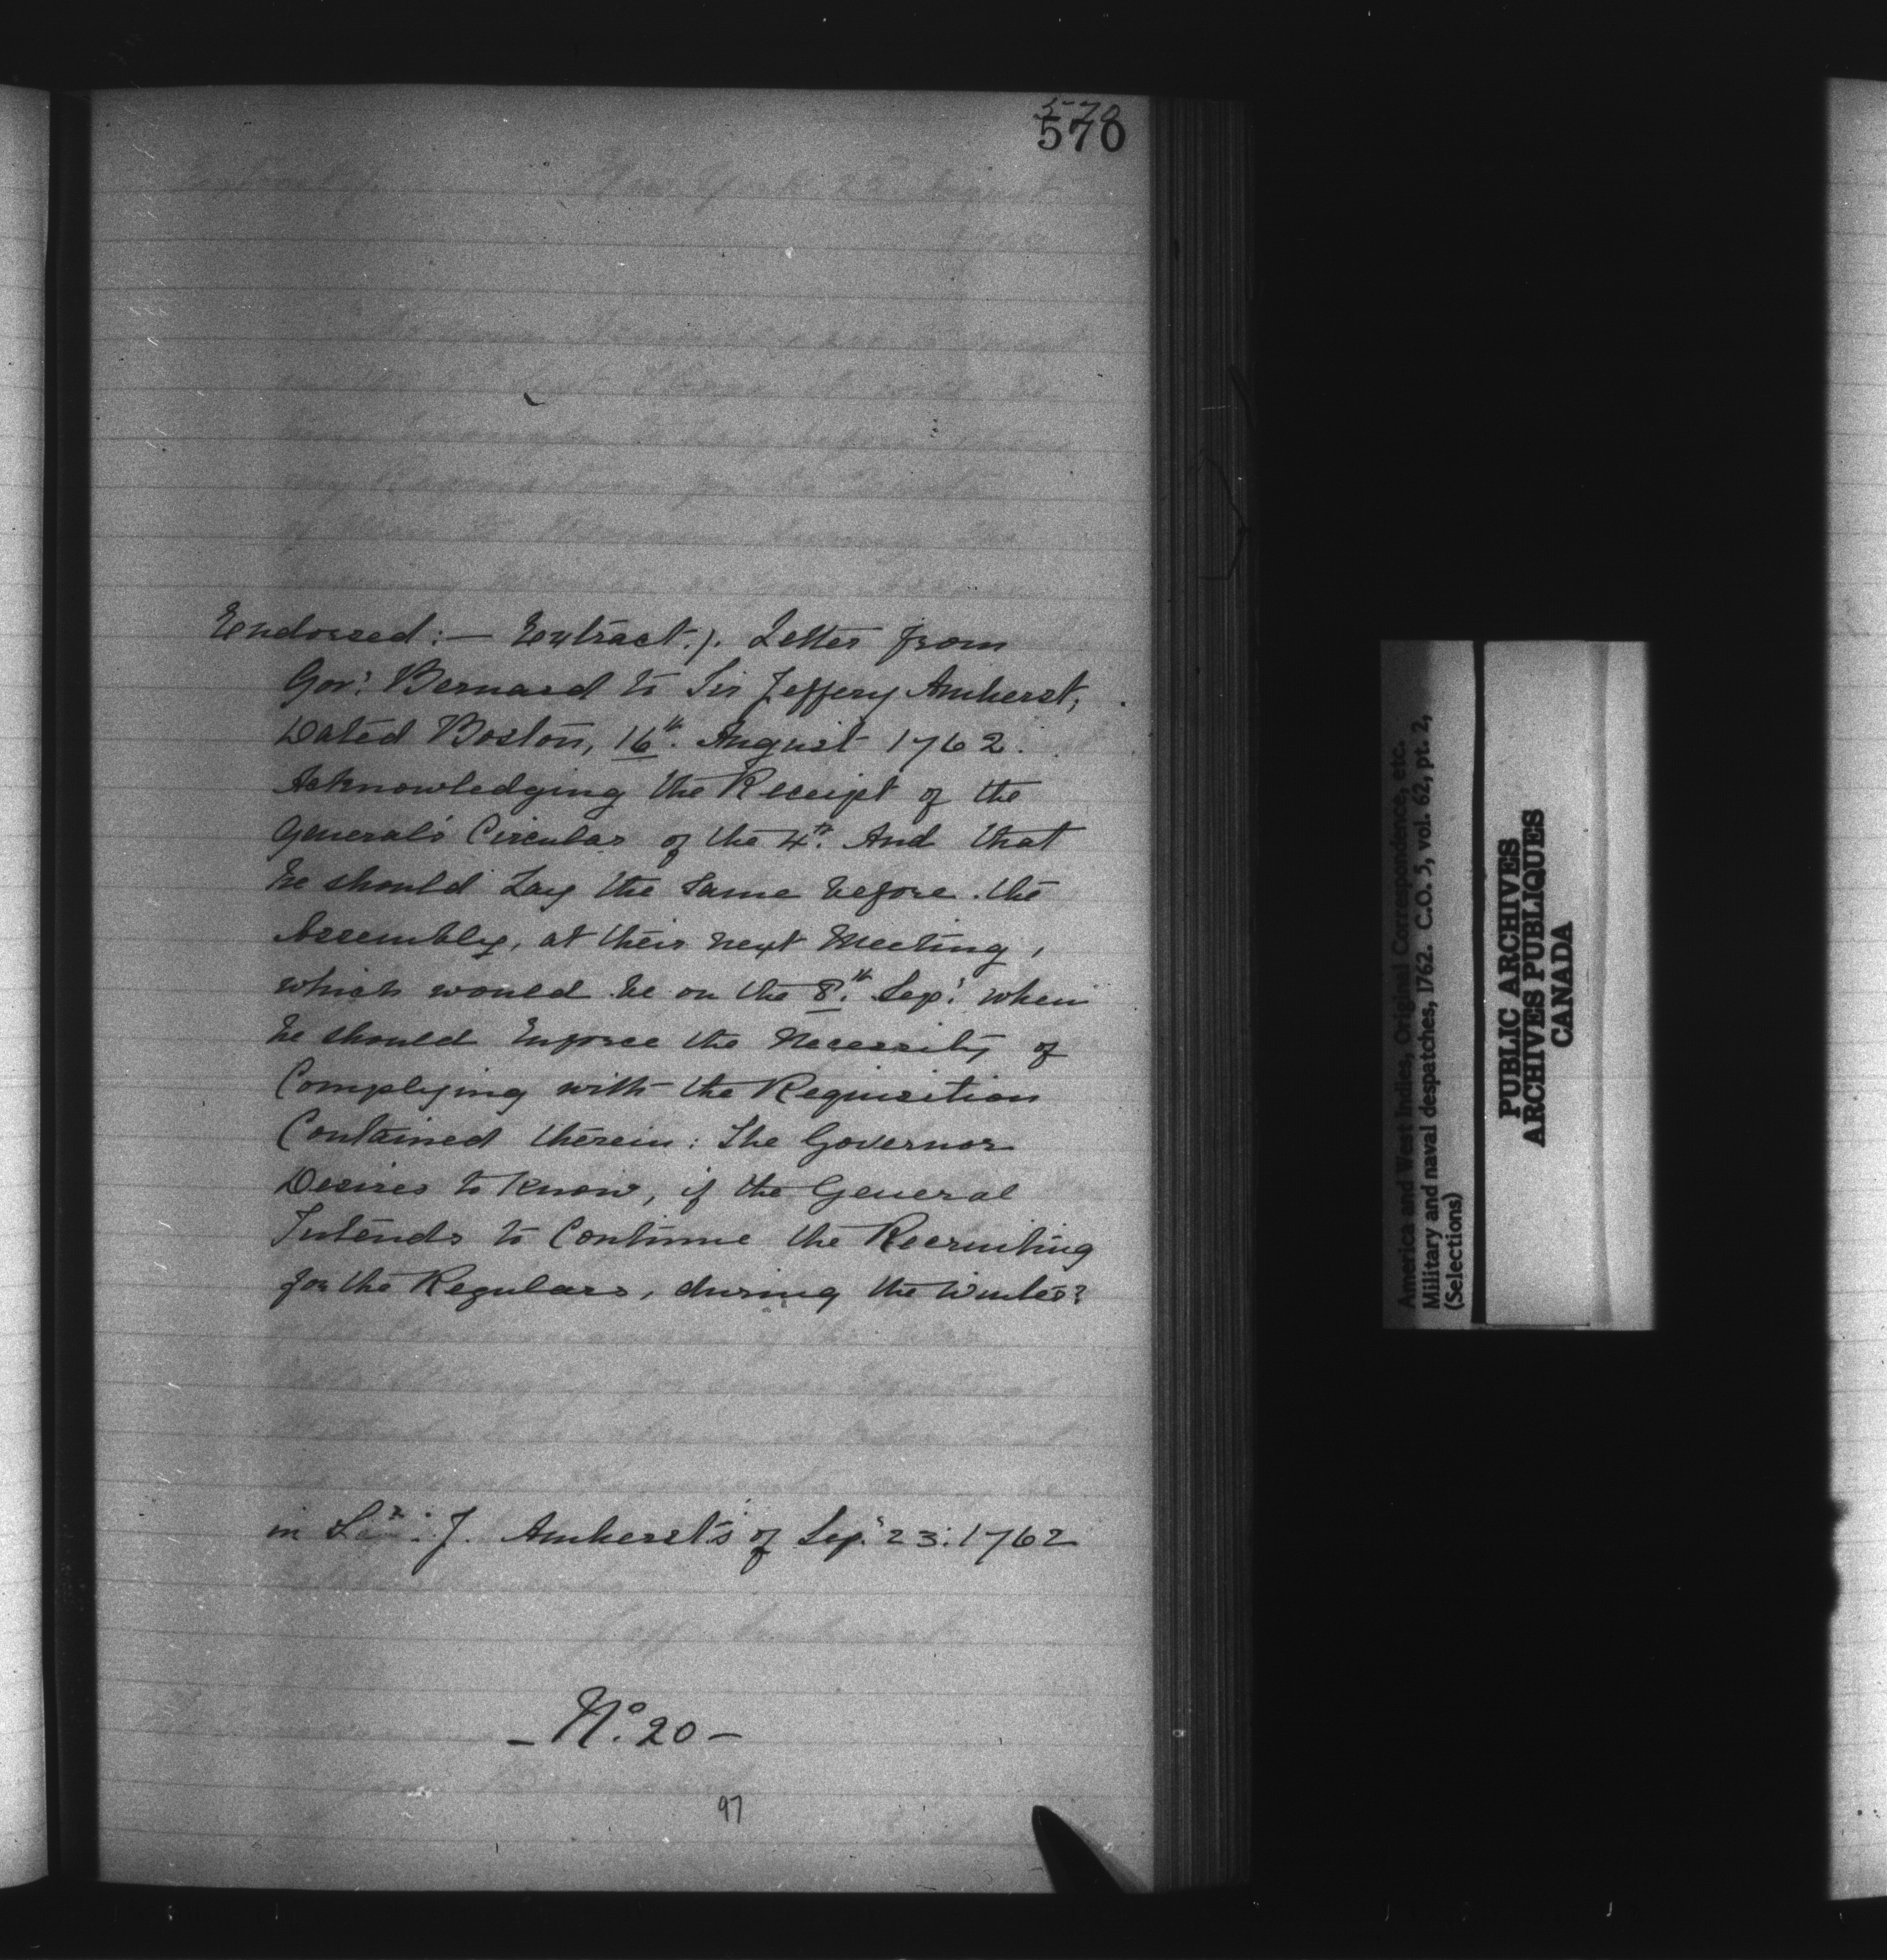 570
570
Endorsed:— Extract.). Letter from
Gov.r Bernard to Sir Jeffery Amherst,
Dated Boston, 16th. August 1762.
Acknowledging the Receipt of the
General's Circular of the 4th. And that
he should Lay the Same before the
Assembly, at their next Meeting,
which would be on the 8.th Sep.r when
he should Enforce the Necessity of
Complying with the Requisition
Contained therein: The Governor
Desires to know, if the General
Intends to Continue the Recruiting
for the Regulars, during the Winter?
in J. Amherst's of Sep.r 23: 1762
— No. 20 —
97
America and West Indies, Original Correspondence, etc.
Military and naval despatches, 1762. C.O. 5, vol. 62, pt. 2,
(Selections)
PUBLIC ARCHIVES
ARCHIVES PUBLIQUES
CANADA